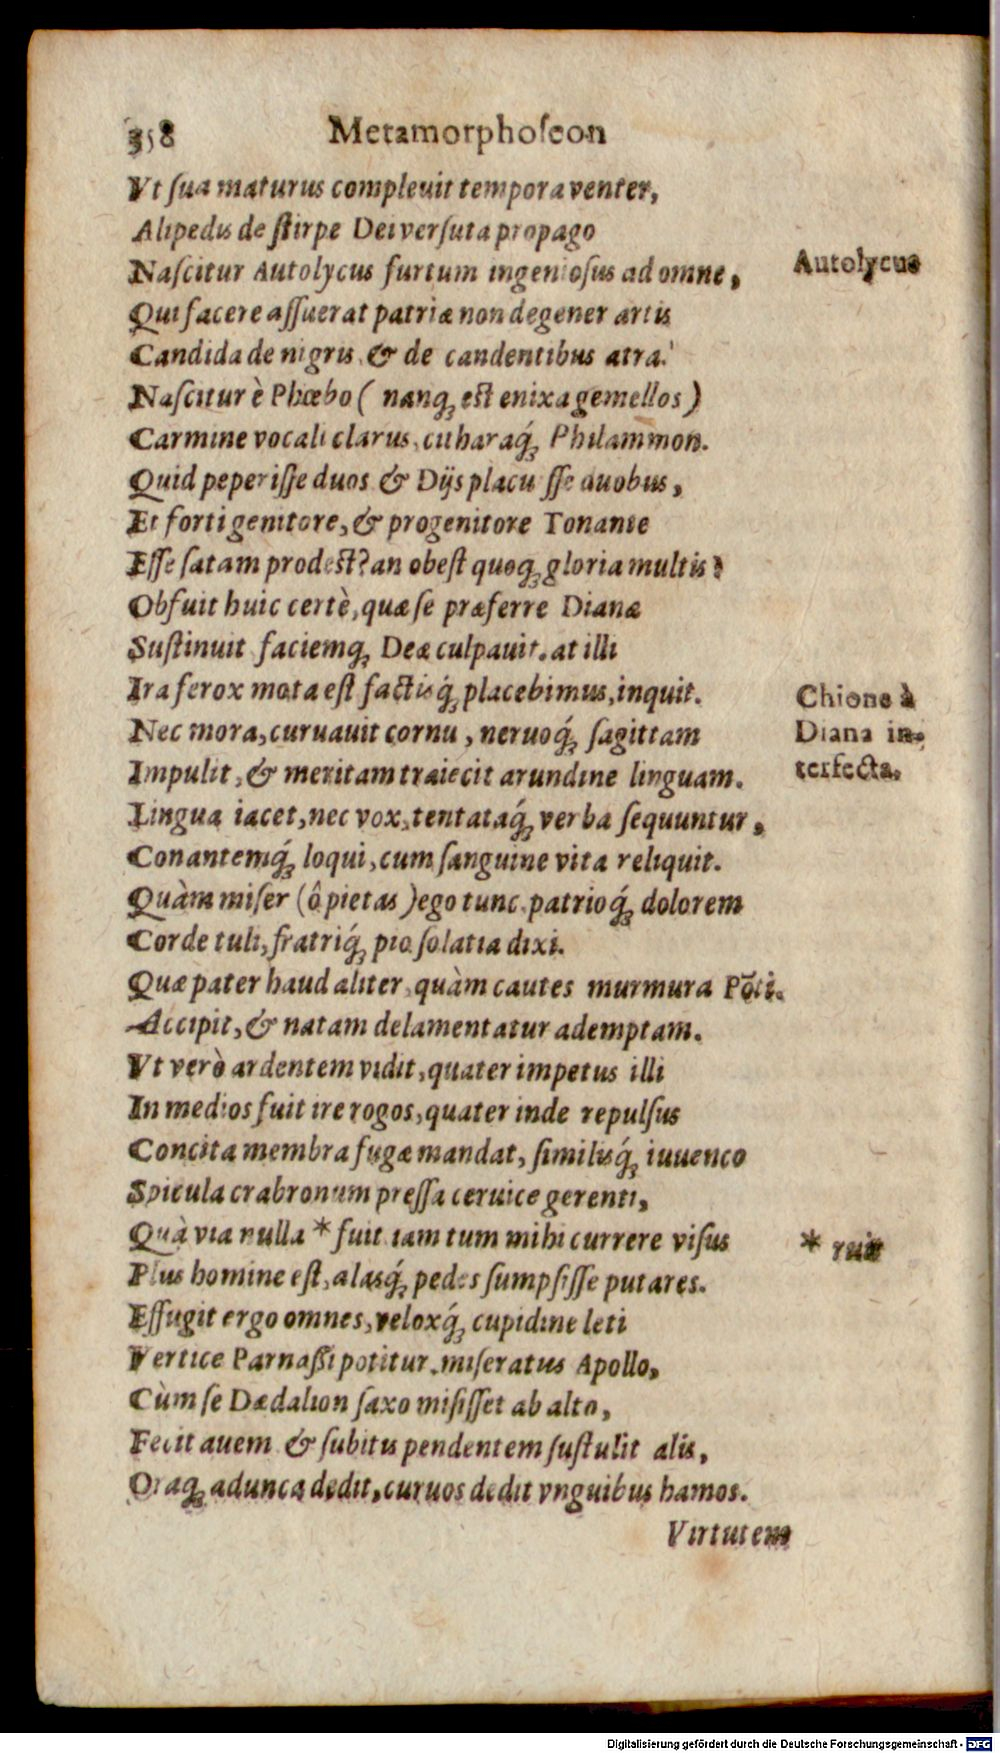 358 Metamorphoſeon
Vt ſua maturus compleuit tempora venter,
Alipedis de ſtirpe Dei verſuta propago
Naſcitur Autolycus furtum ingenioſus ad omne,
Autolycus
Qui facere aſſuerat patriæ non degener artis
Candida de nigris & de candentibus atra.
Naſcitur è Phœbo ( nanq; eſt enixa gemellos )
Carmine vocali clarus, citharaq́; Philammon.
Quid peperiſſe duos & Dijs placuiſſe duobus,
Et forti genitore, & progenitore Tonante
Eſſe ſatam prodeſt? an obeſt quoq; gloria multis?
Obfuit huic certè, quæ ſe præferre Dianæ
Suſtinuit faciemq; Deæ culpauit. at illi
Ira ferox mota eſt factisq́; placebimus, inquit.
Chione à
Nec mora, curuauit cornu, neruoq́; ſagittam
Diana in-
Impulit, & meritam traiecit arundine linguam.
terfecta.
Lingua iacet, nec vox, tentataq́; verba ſequuntur,
Conantemq́; loqui, cum ſanguine vita reliquit.
Quàm miſer (ô pietas) ego tunc patrioq́; dolorem
Corde tuli, fratriq́; pio ſolatia dixi.
Quæ pater haud aliter, quàm cautes murmura Põti.
Accipit, & natam delamentatur ademptam.
Vt verò ardentem vidit, quater impetus illi
In medios fuit ire rogos, quater inde repulſus
Concita membra fugæ mandat, ſimilisq́; iuuenco
Spicula crabronum preſſa ceruice gerenti,
Quà via nulla * fuit iam tum mihi currere viſus
* ruit
Plus homine eſt, alasq́; pedes ſumpſiſſe putares.
Effugit ergo omnes, veloxq́; cupidine leti
Vertice Parnaſſi potitur. miſeratus Apollo,
Cùm ſe Dædalion ſaxo miſiſſet ab alto,
Fecit auem & ſubitis pendentem ſuſtulit alis,
Oraq; adunca dedit, curuos dedit vnguibus hamos.
Virtutem
Digitalisierung gefördert durch die Deutsche Forschungsgemeinschaft - DFG